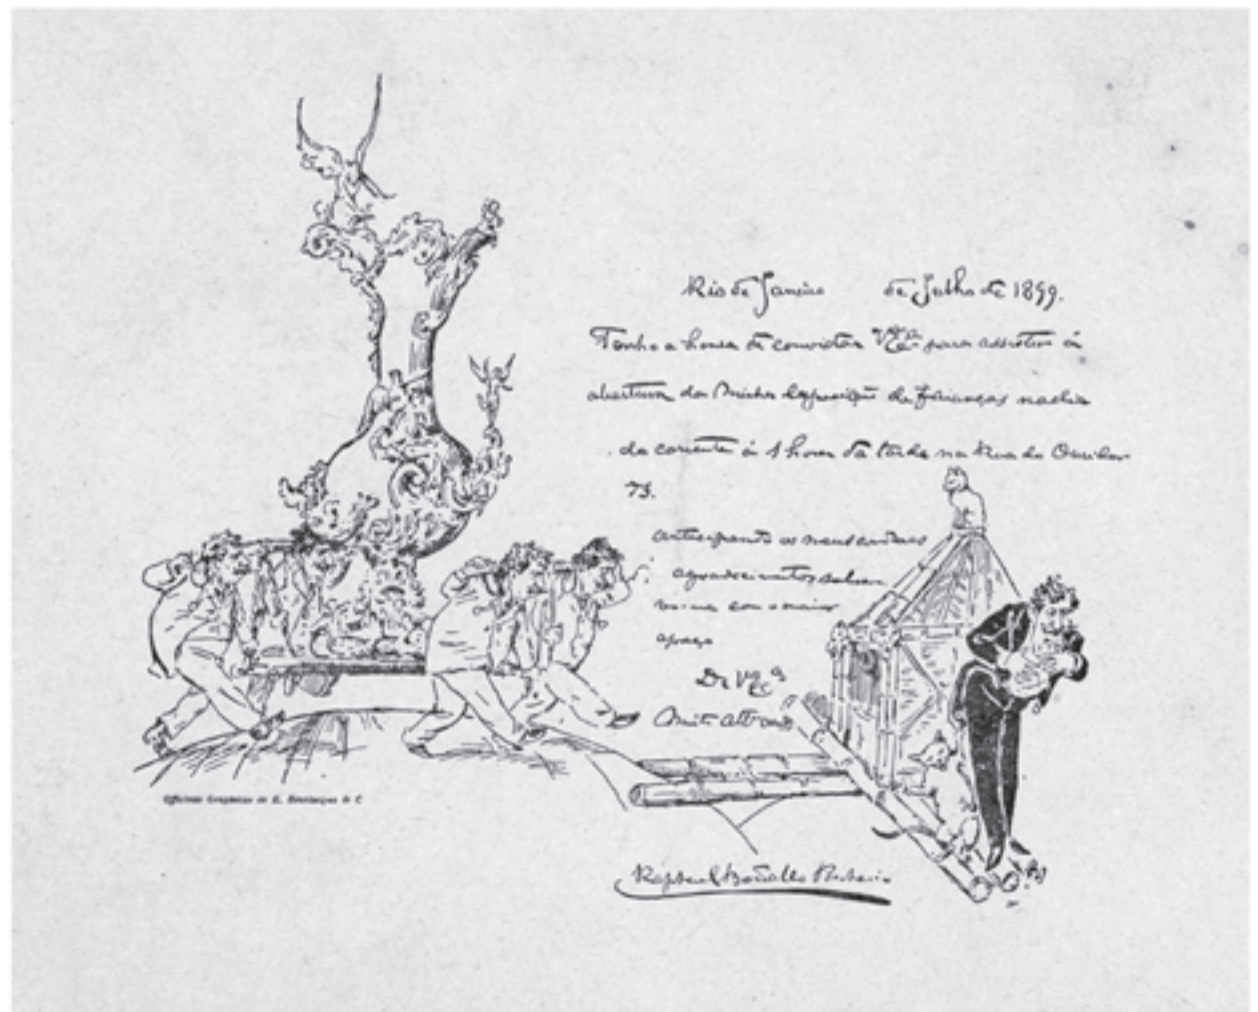 Rio de Janeiro de Julho de 1899.
Tenho a honra de convidar V.Exª para assistir á
abertura da minha Exposição de faianças no dia
do corrente á 1 hora da tarde na Rua do Ouvidor
73.
Antecipando os meus
agradecimentos
com a maior
De V. Exª
Raphael Bordallo Pinheiro
Officinas Graphicas de & C